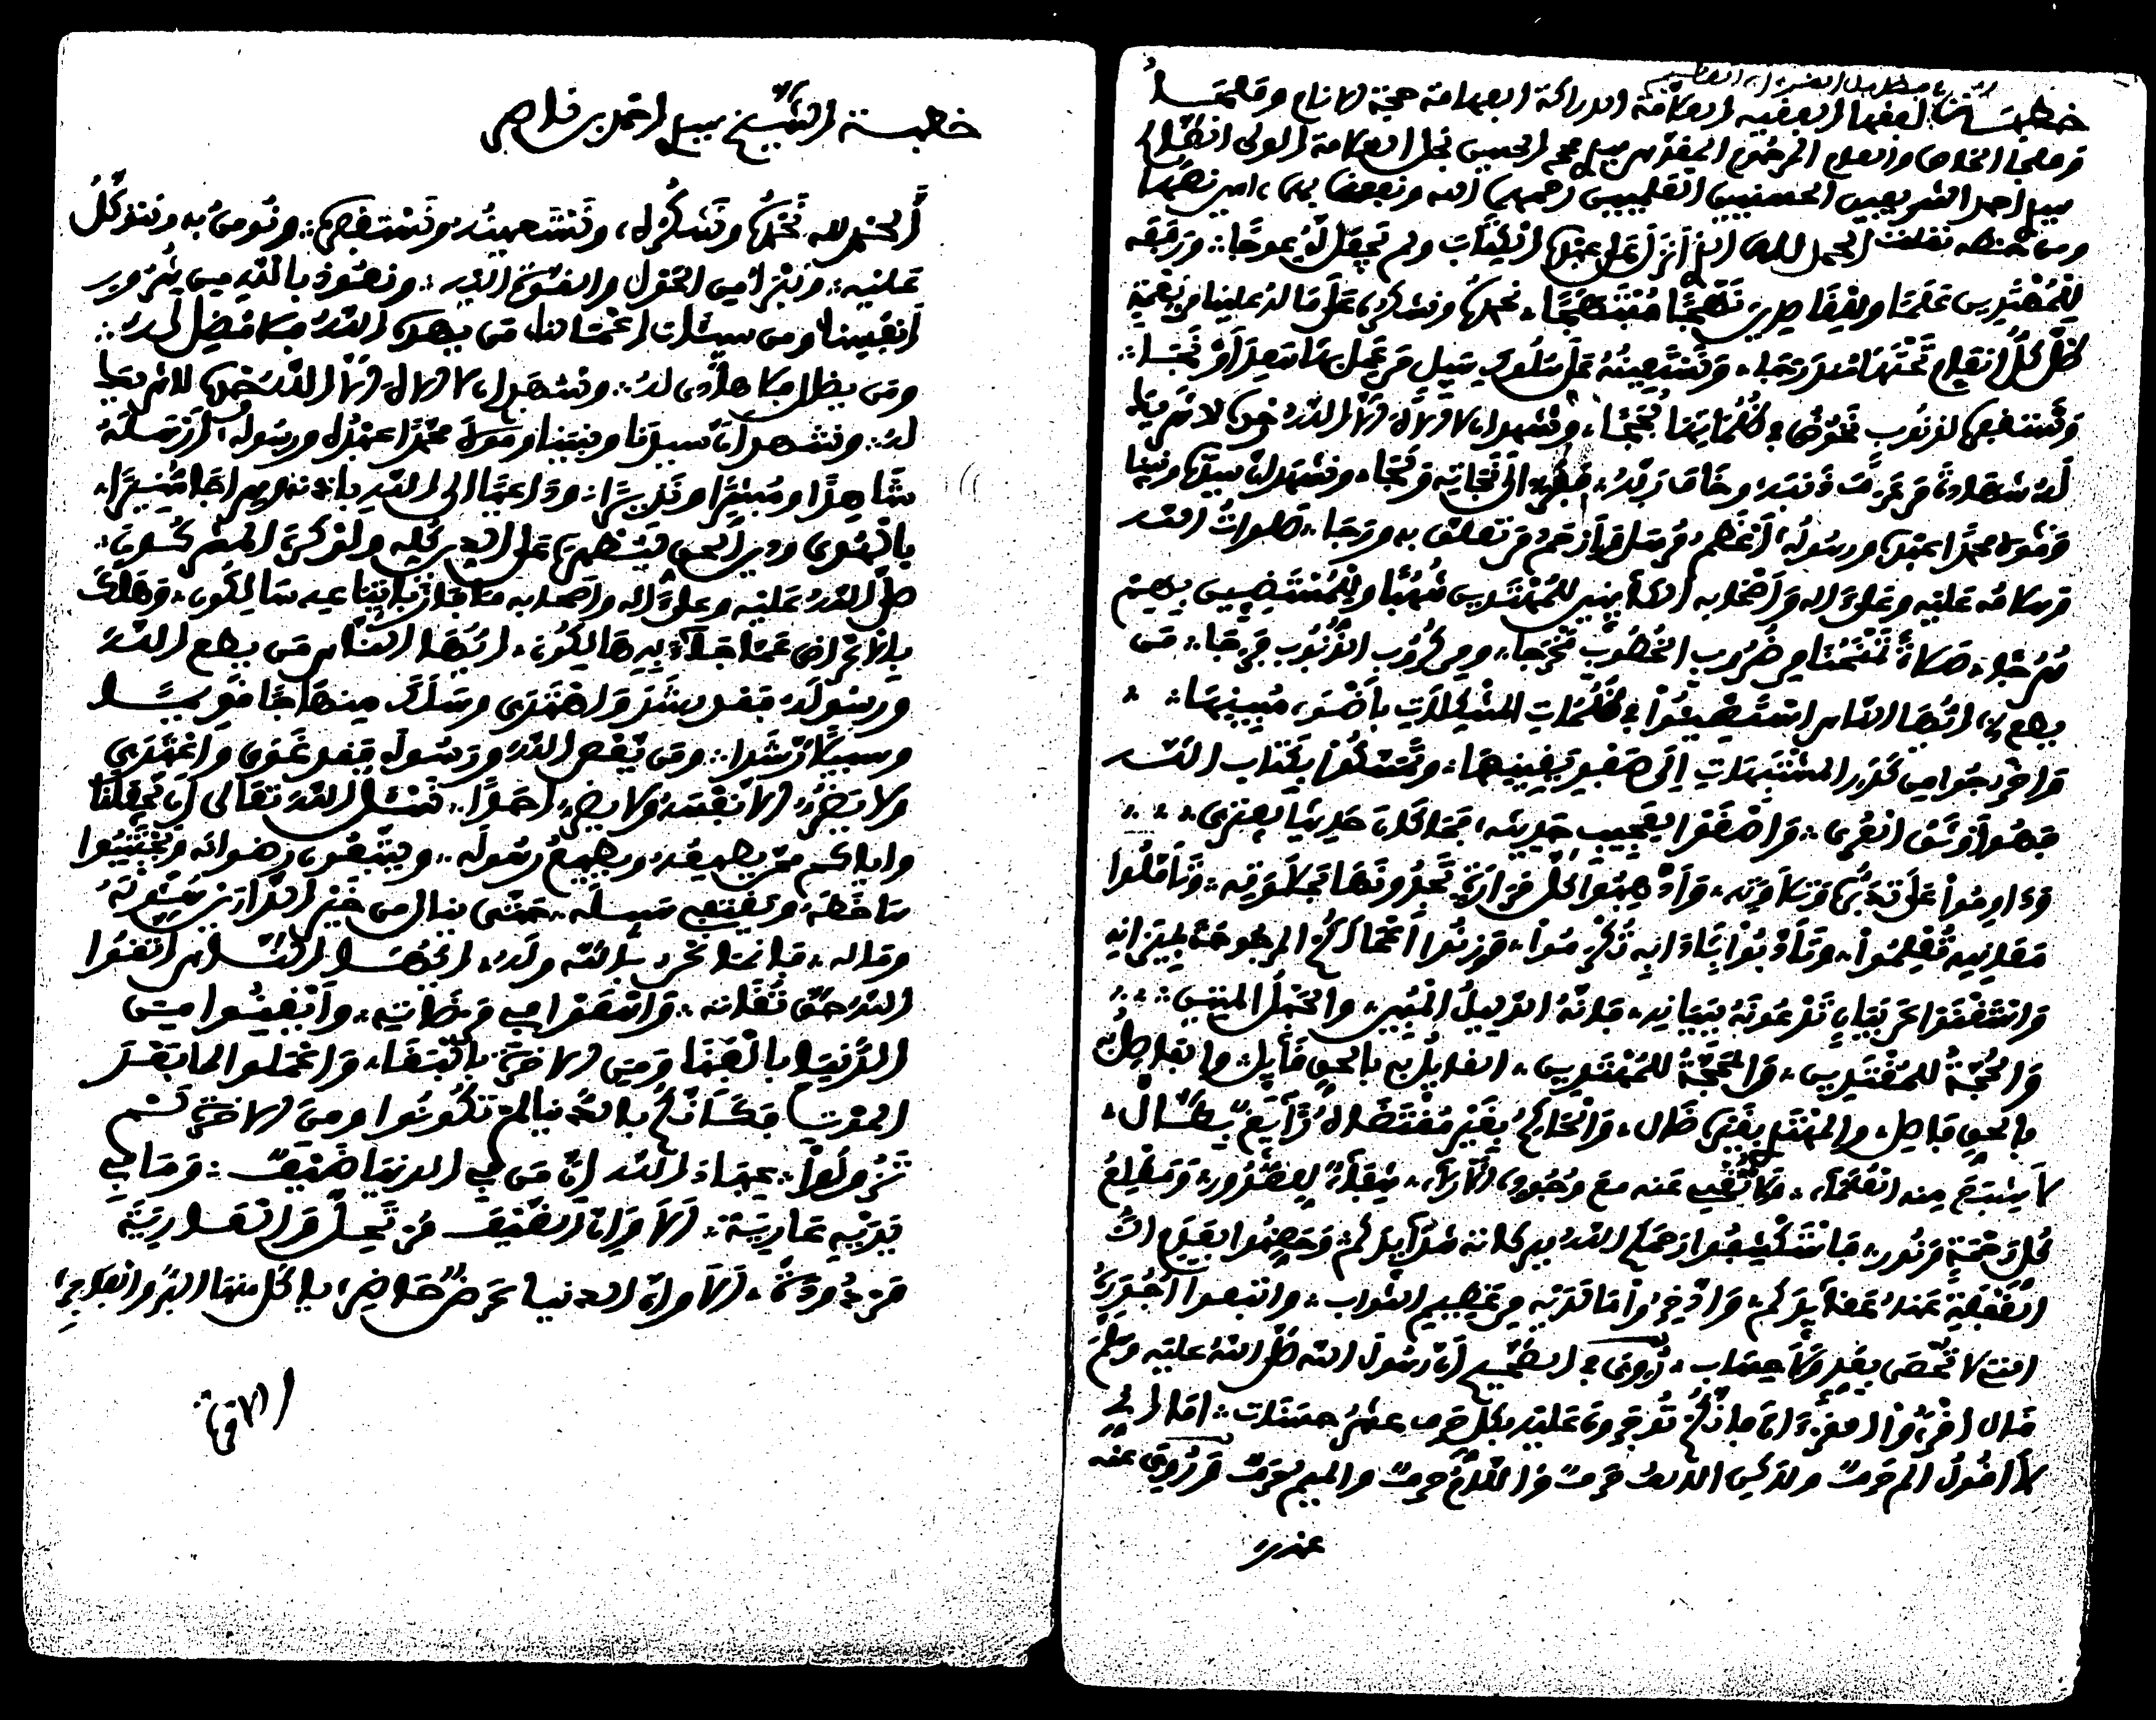 خطبة لفقيها الفقيه العلامة الدراكة الفهامة حجة الانام
وملجا الخاص والعام المرحوم المقدس سيدي محمد الحسن نجل العلامة الولي
سيدي احمد الشريفين الحسنيين رحمهما الله ونفعنا بهما ءامين نصها
ومن خطه نقلت الحمد لله الذي أنزل على عبده الكتاب ولم يجعل له عوجا ورفعه
للمهتدين علما وللقاصدين نهجا منتهجا نحمده ونشكره على ما له علينا من نعمة
ظل كل انعام تحتها مندرجا ونستعينه على سلوك سبيل من عمل صالحا ونجا
ونستغفره لذنوب نخوض في ظلماتها لججا ونشهد ان لا إله إلا الله وحده لا شريك
له شهادة من عرف ذنبه وخاف ربه ففر الى نجاته ونجا ونشهد ان سيدنا ونبينا
ومولانا محمدا عبده ورسوله أعظم مرسل وأرحم من تعلق به ورجا صلوات الله
وسلامه عليه وعلى ءاله وأصحابه الكائنين للمهتدين شهبا وللمستضيئين بهم
سرجا صلاة تمنحنا من ضروب الخطوب مخرجا ومن كروب الذنوب فرجا من
يطع الله ايها الناس استضيئوا في ظلمات المشكلات بأضوء مبينها
واخرجوا من كدر المشتبهات إلى صفو يقينها وتمسكوا بكتاب الله
فهو أوثق العرى واصغوا لعجيب حديثه فما كان حديثا يفترى
وداوموا على تدبره وتلاوته وأذهبوا كل مرارة تجدونها بحلاوته وتأملوا
معانيه تفلحوا وتأدبوا بآدابه تكرموا وزنوا أعمالكم المرجوحة بميزانه
واستغنوا عن بيان تدعونه ببيانه فإنه الدليل المبين والحبل المتين
والحجة للمقتدين والمحجة للمهتدين القائل به بالحق قائل والفاصل به
بالحق فاصل والمهتدي بغيره ضال والحاكم بغير مقتضاه زائغ بطال
لا يشبع منه العلماء ولا تغني عنه مع وجوده الآراء شفاء للصدور ومطلع
كل رحمة ونور فاستكشفوا رحمكم الله ببركاته شدائدكم وحصنوا بقيد
الغفلة عنه عقائدكم وادخروا ما لديه من عظيم الثواب واتبعوا أجوره
التي لا تحصى بعد ولا حساب روي في الصحيح أن رسول الله صلى الله عليه وسلم
قال اقرءوا القرءان فإنكم تؤجرون عليه بكل حرف عشر حسنات أما إني
لا أقول الم حرف ولكن الالف حرف واللام حرف والميم حرف وروي عنه
خطبة الشيخ سيدي احمد بن ناصر
ألحمد لله نحمده ونشكره ونستعينه ونستغفره ونومن به ونتوكل
عليه ونبرأ من الحول والقوة اليه ونعوذ بالله من شرور
أنفسنا ومن سيئات أعمالنا من يهد الله فلا مضل له
ومن يضلل فلا هادي له ونشهد ان لا إله إلا الله وحده لا شريك
له ونشهد أن سيدنا ونبينا ومولانا محمدا عبده ورسوله أرسله
شاهدا ومبشرا ونذيرا وداعيا الى الله بإذنه وسراجا منيرا
بالهدى ودين الحق ليظهره على الدين كله ولو كره المشركون
صلى الله عليه وعلى ءاله وأصحابه ما فاز باتباعه سالكون وهلك
بالاعراض عما جاء به هالكون ايها الناس من يطع الله
ورسوله فقد رشد واهتدى وسلك منهاجا قويما
وسبيلا رشدا ومن يعص الله ورسوله فقد غوى واعتدى
ولا يضر إلا نفسه ولا يضر أحدا نسئل الله تعالى أن يجعلنا
واياكم ممن يطيعه ويطيع رسوله ويتبعون رضوانه ويجتنبوا
ساخطه ويقتفي سبيله حتى ينال من خير الدارين
وماله فإنما نحن بالله وله ايها الناس اتقوا
الله حق تقاته واسعوا في مرضاته وأيقنوا من
الدنيا بالفنا ومن الاخرة بالبقا واعملوا لما بعد
الموت فكأنكم بالدنيا لم تكونوا ومن الاخرة لم
تزولوا عباد الله ان من في الدنيا ضيف وما في
يديه عارية ألا وإن الضيف مرتحل والعارية
مردودة ألا وإن الدنيا عرض حاضر يأكل منها البر والفاجر